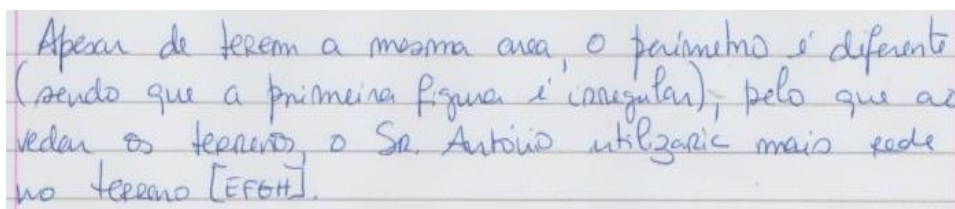 Apesar de terem a mesma area, o perímetro é diferente
(sendo que a primeira figura é irregular), pelo que ao
vedar os terrenos, o Sr. António utilizaria mais rede
no terreno [EFGH].